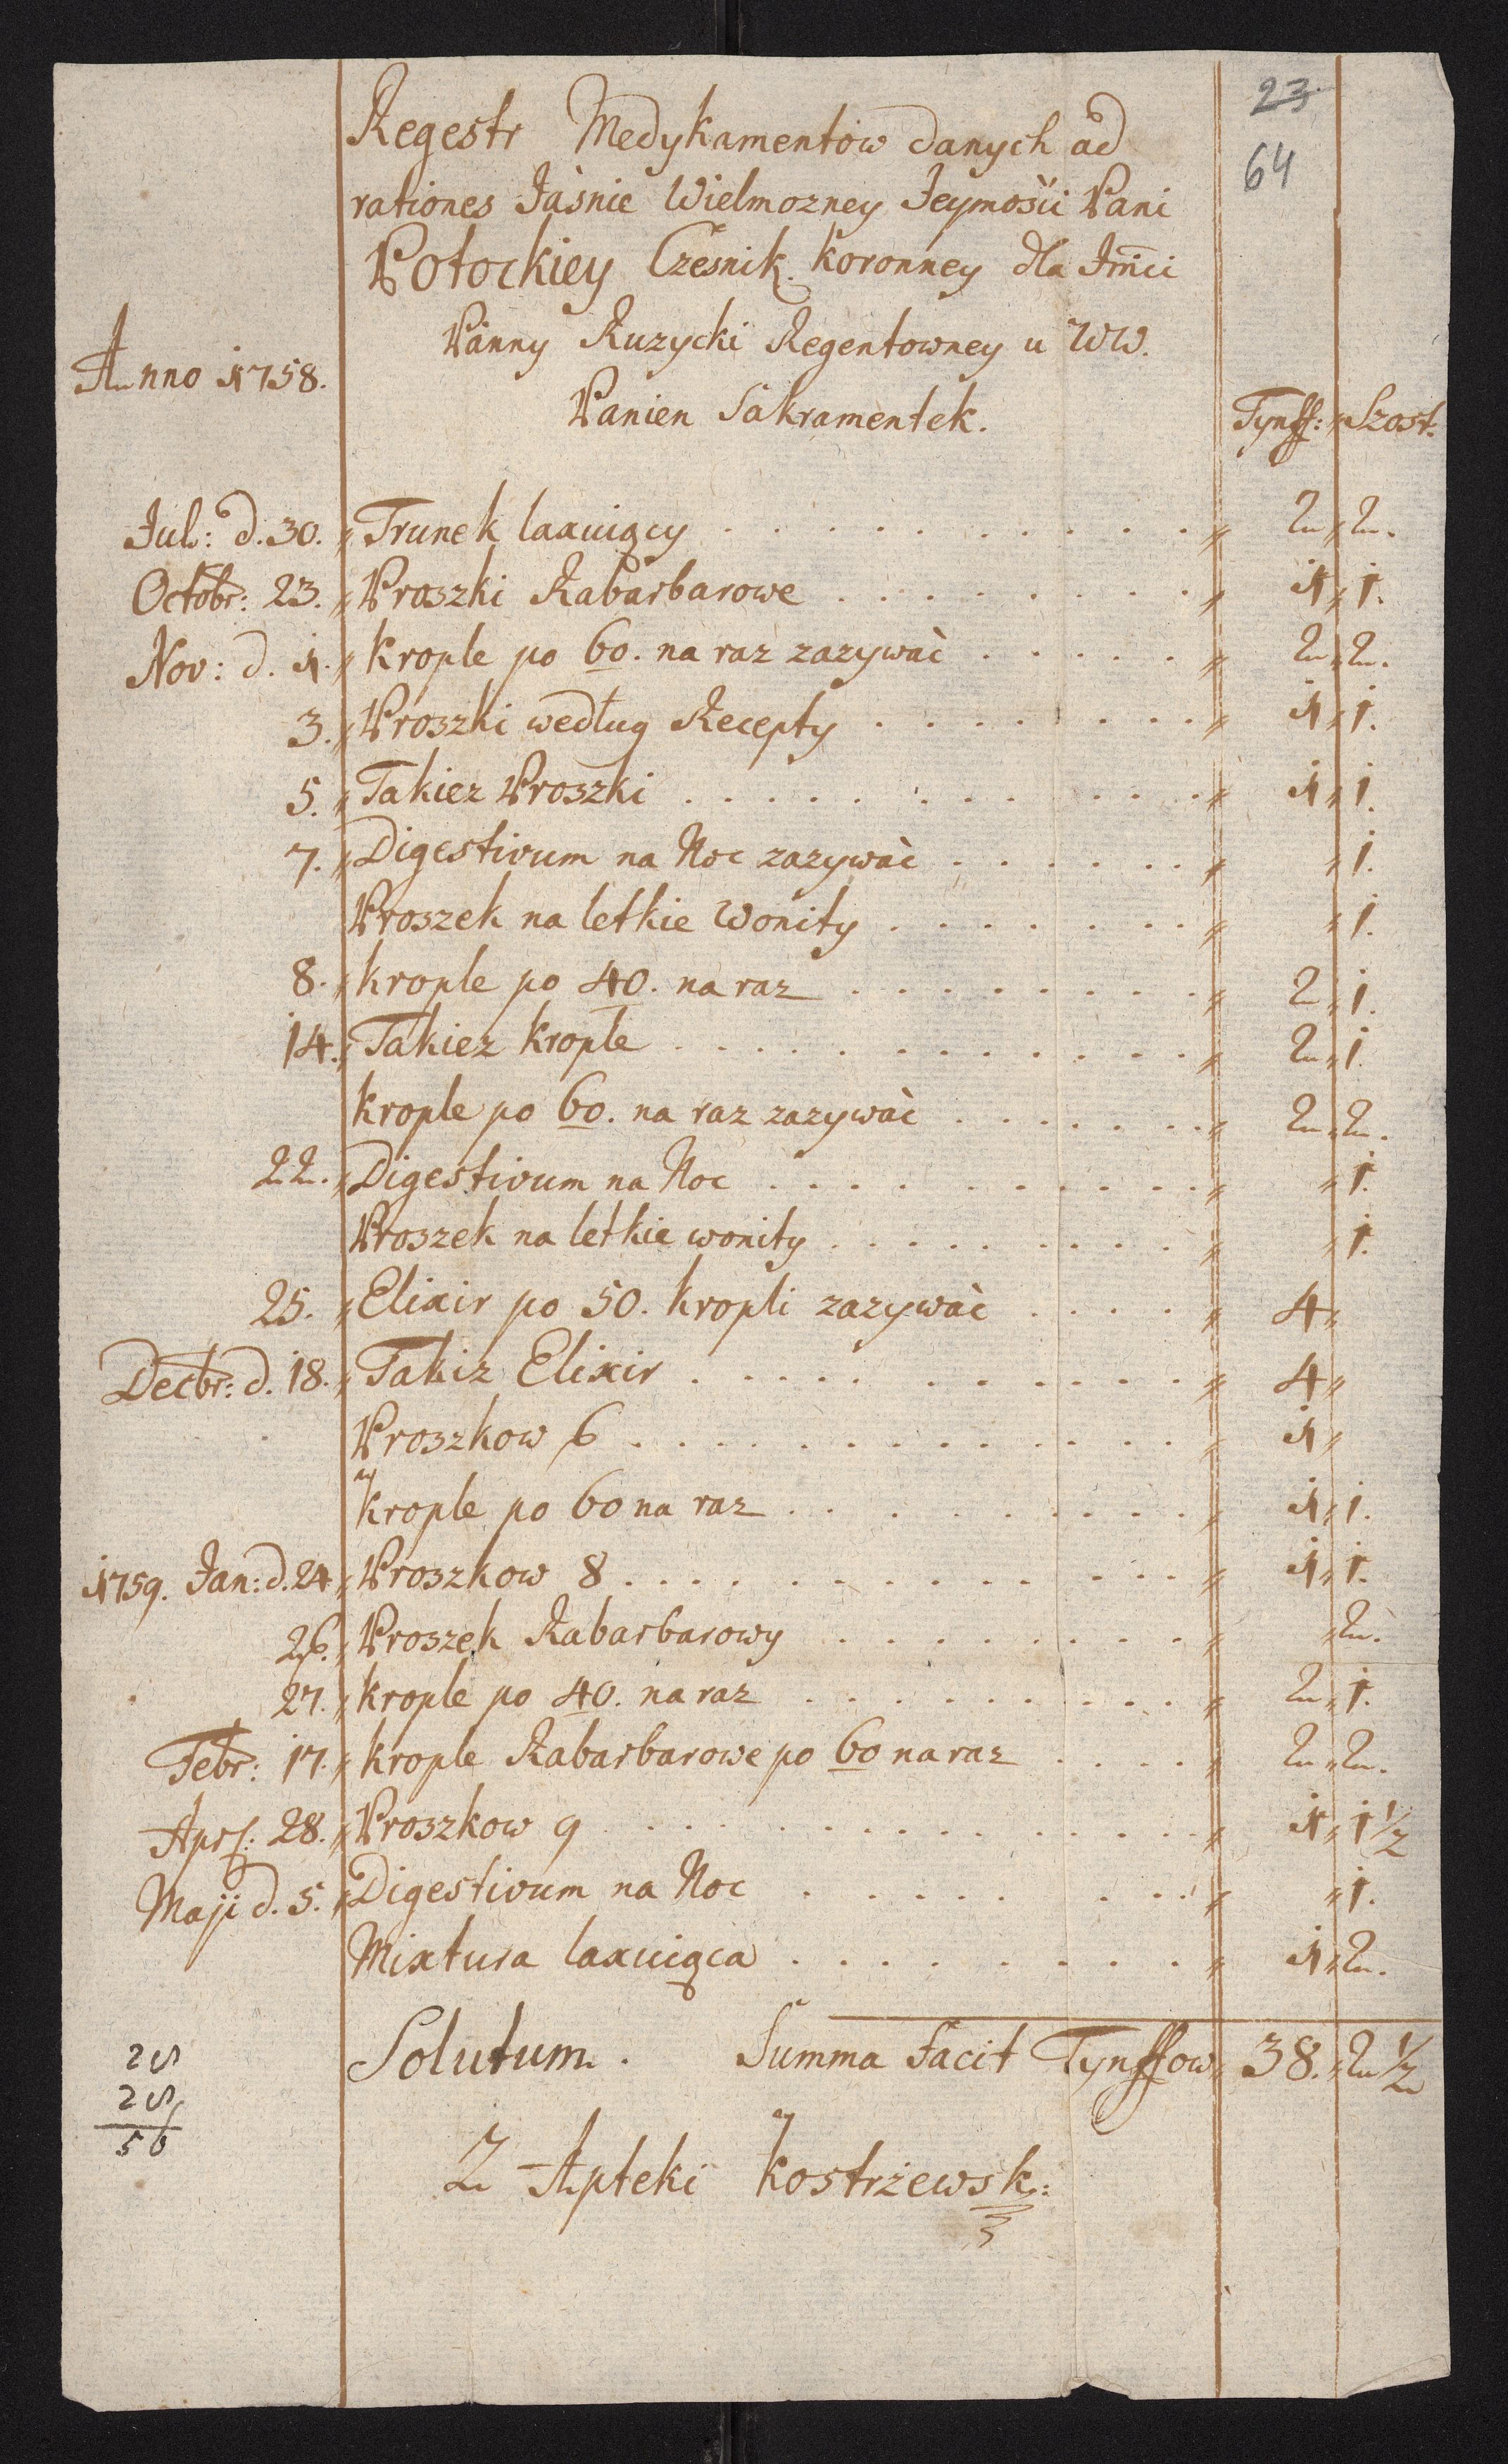 23
64
Regestr Medykamentow danych ad
rationes Jaśnie Wielmozney Jeymośći Pani
Potockiey Czesnik. koronney dla Jm̃ci
Panny Ruzycki Regentowney u WW.
Anno 1758.
Panien Sakramentek.
Tynff: " Szost.
Jul: d. 30. " Trunek laxuiący . . . . . . . . . . " 2 " 2.
Octobr: 23. " Proszki Rabarbarowe . . . . . . . . " 1 " 1.
Nov: d. 1. " krople po 60. na raz zazywać . . . . . " 2 " 2.
3. " Proszki według Recepty . . . . . . . " 1 " 1.
5. " Takiez Proszki . . . . . . . . . . . " 1 " 1.
7. " Digestivum na Noc zazywać . . . . . . " " 1.
Proszek na letkie Wonity . . . . . . . " " 1.
8. " krople po 40. na raz . . . . . . . . " 2 " 1.
14. " Takiez krople . . . . . . . . . . . " 2 " 1.
krople po 60. na raz zazywać . . . . . . " 2 " 2.
22. " Digestivum na Noc . . . . . . . . . " " 1.
Proszek na letkie wonity . . . . . . . . " " 1.
25. " Elixir po 50. kropli zazywać . . . . " 4 "
Decbr: d. 18. " Takiz Elixir . . . . . . . . . . " 4 "
Proszkow 6 . . . . . . . . . . . . " 1 "
krople po 60 na raz . . . . . . . . . " 1 " 1.
1759. Jan: d. 24 " Proszkow 8 . . . . . . . . . . . " 1 " 1.
26. " Proszek Rabarbarowy . . . . . . . . " " 2.
27. " krople po 40. na raz . . . . . . . . " 2 " 1.
Febr: 17. " krople Rabarbarowe po 60 na raz . . . . " 2 " 2.
Apr: 28. " Proszkow 9 . . . . . . . . . . . " 1 " 1 1/2
Maji d. 5. " Digestivum na Noc . . . . . . . . " " 1.
Mixtura laxuiąca . . . . . . . . . " 1 " 2.
Solutum. Summa facit Tynffow " 38. " 2 1/2
28
28
56
Z Apteki Kostrżewsk: